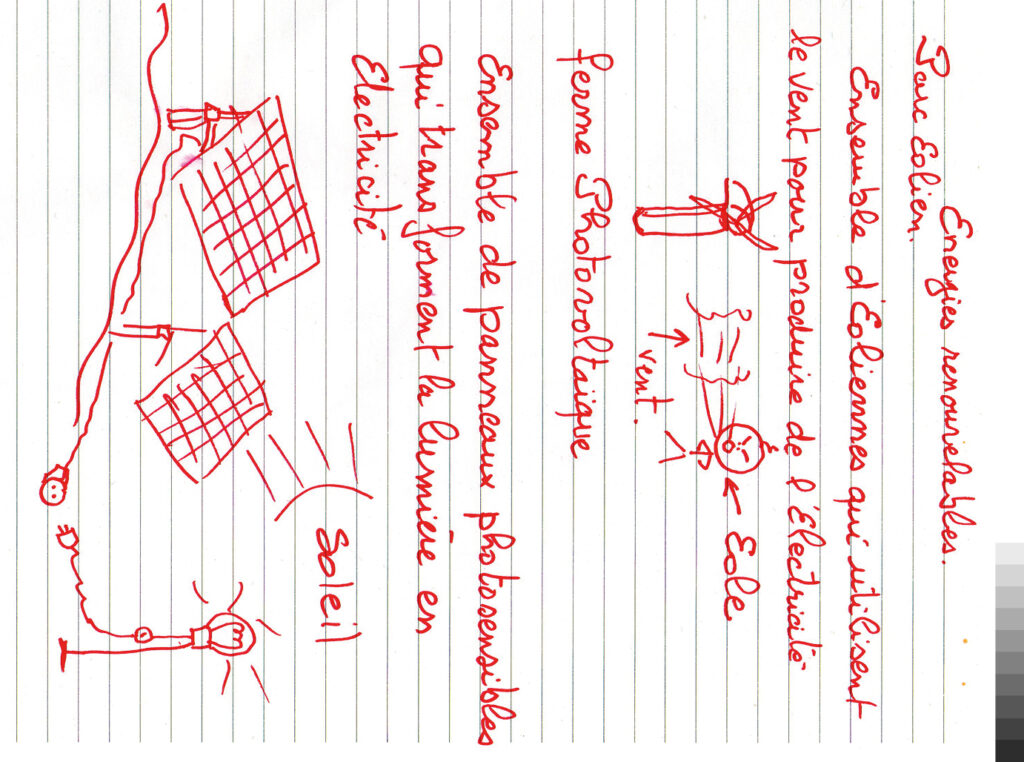 Energies renouvelables.
Parc Eolien.
Ensemble d'Eoliennes qui utilisent
le vent pour produire de l'Electricité
Eole
vent.
ferme Photovoltaïque
Ensemble de panneaux photosensibles
qui transforment la lumière en
Electricité
Soleil